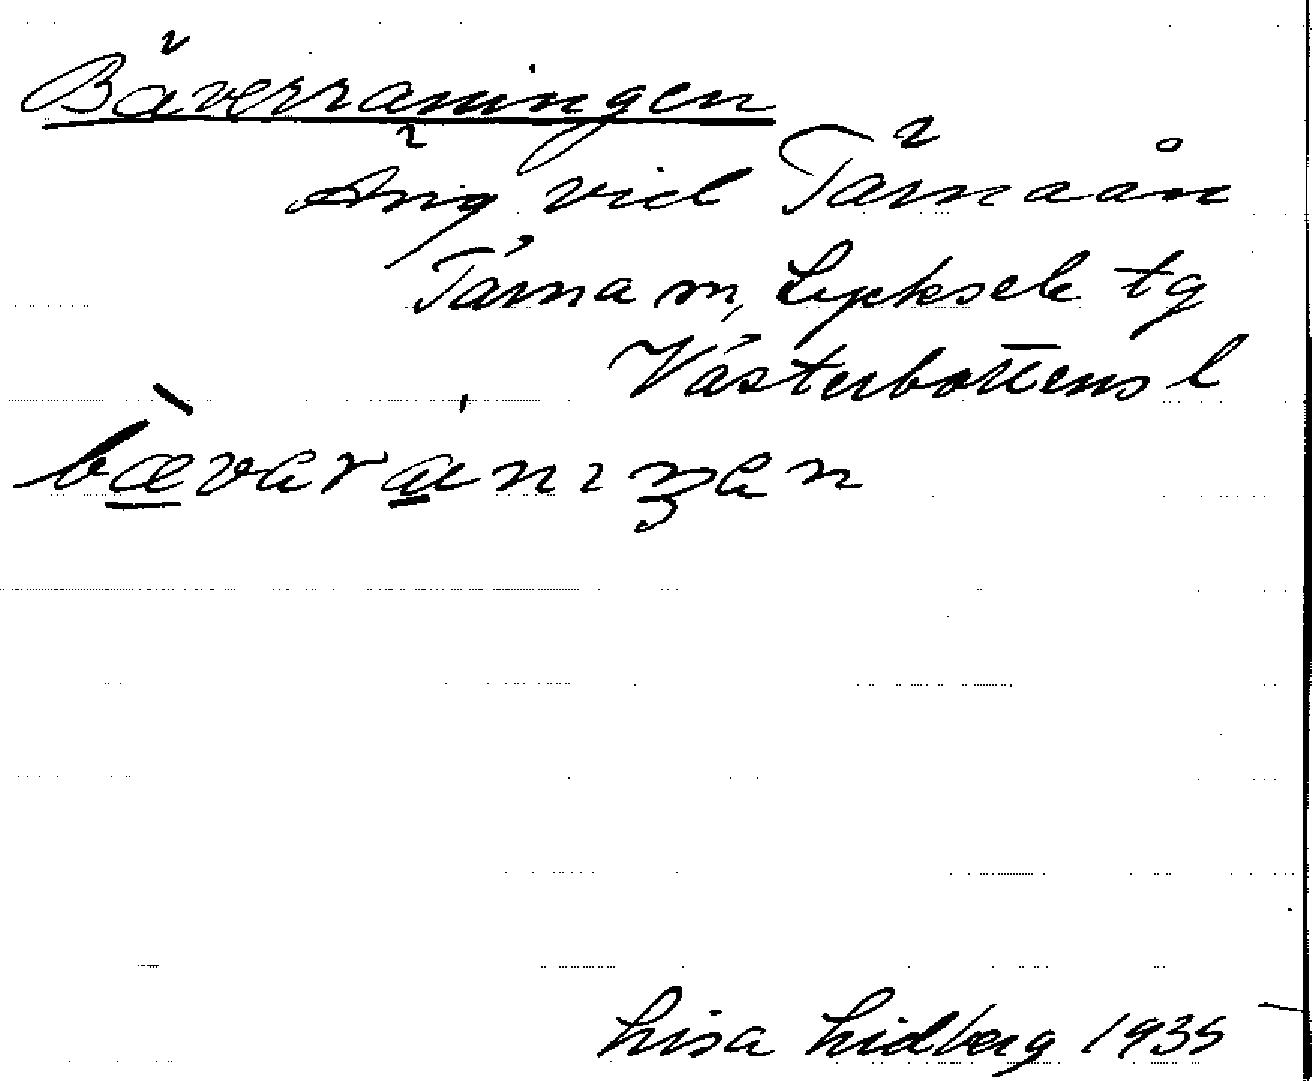 Bäverraningen
Äng vid Tärnaån
Tärna sn, Lycksele tg
Västerbottens l
bævaraniŋən
Lisa Lidberg 1935